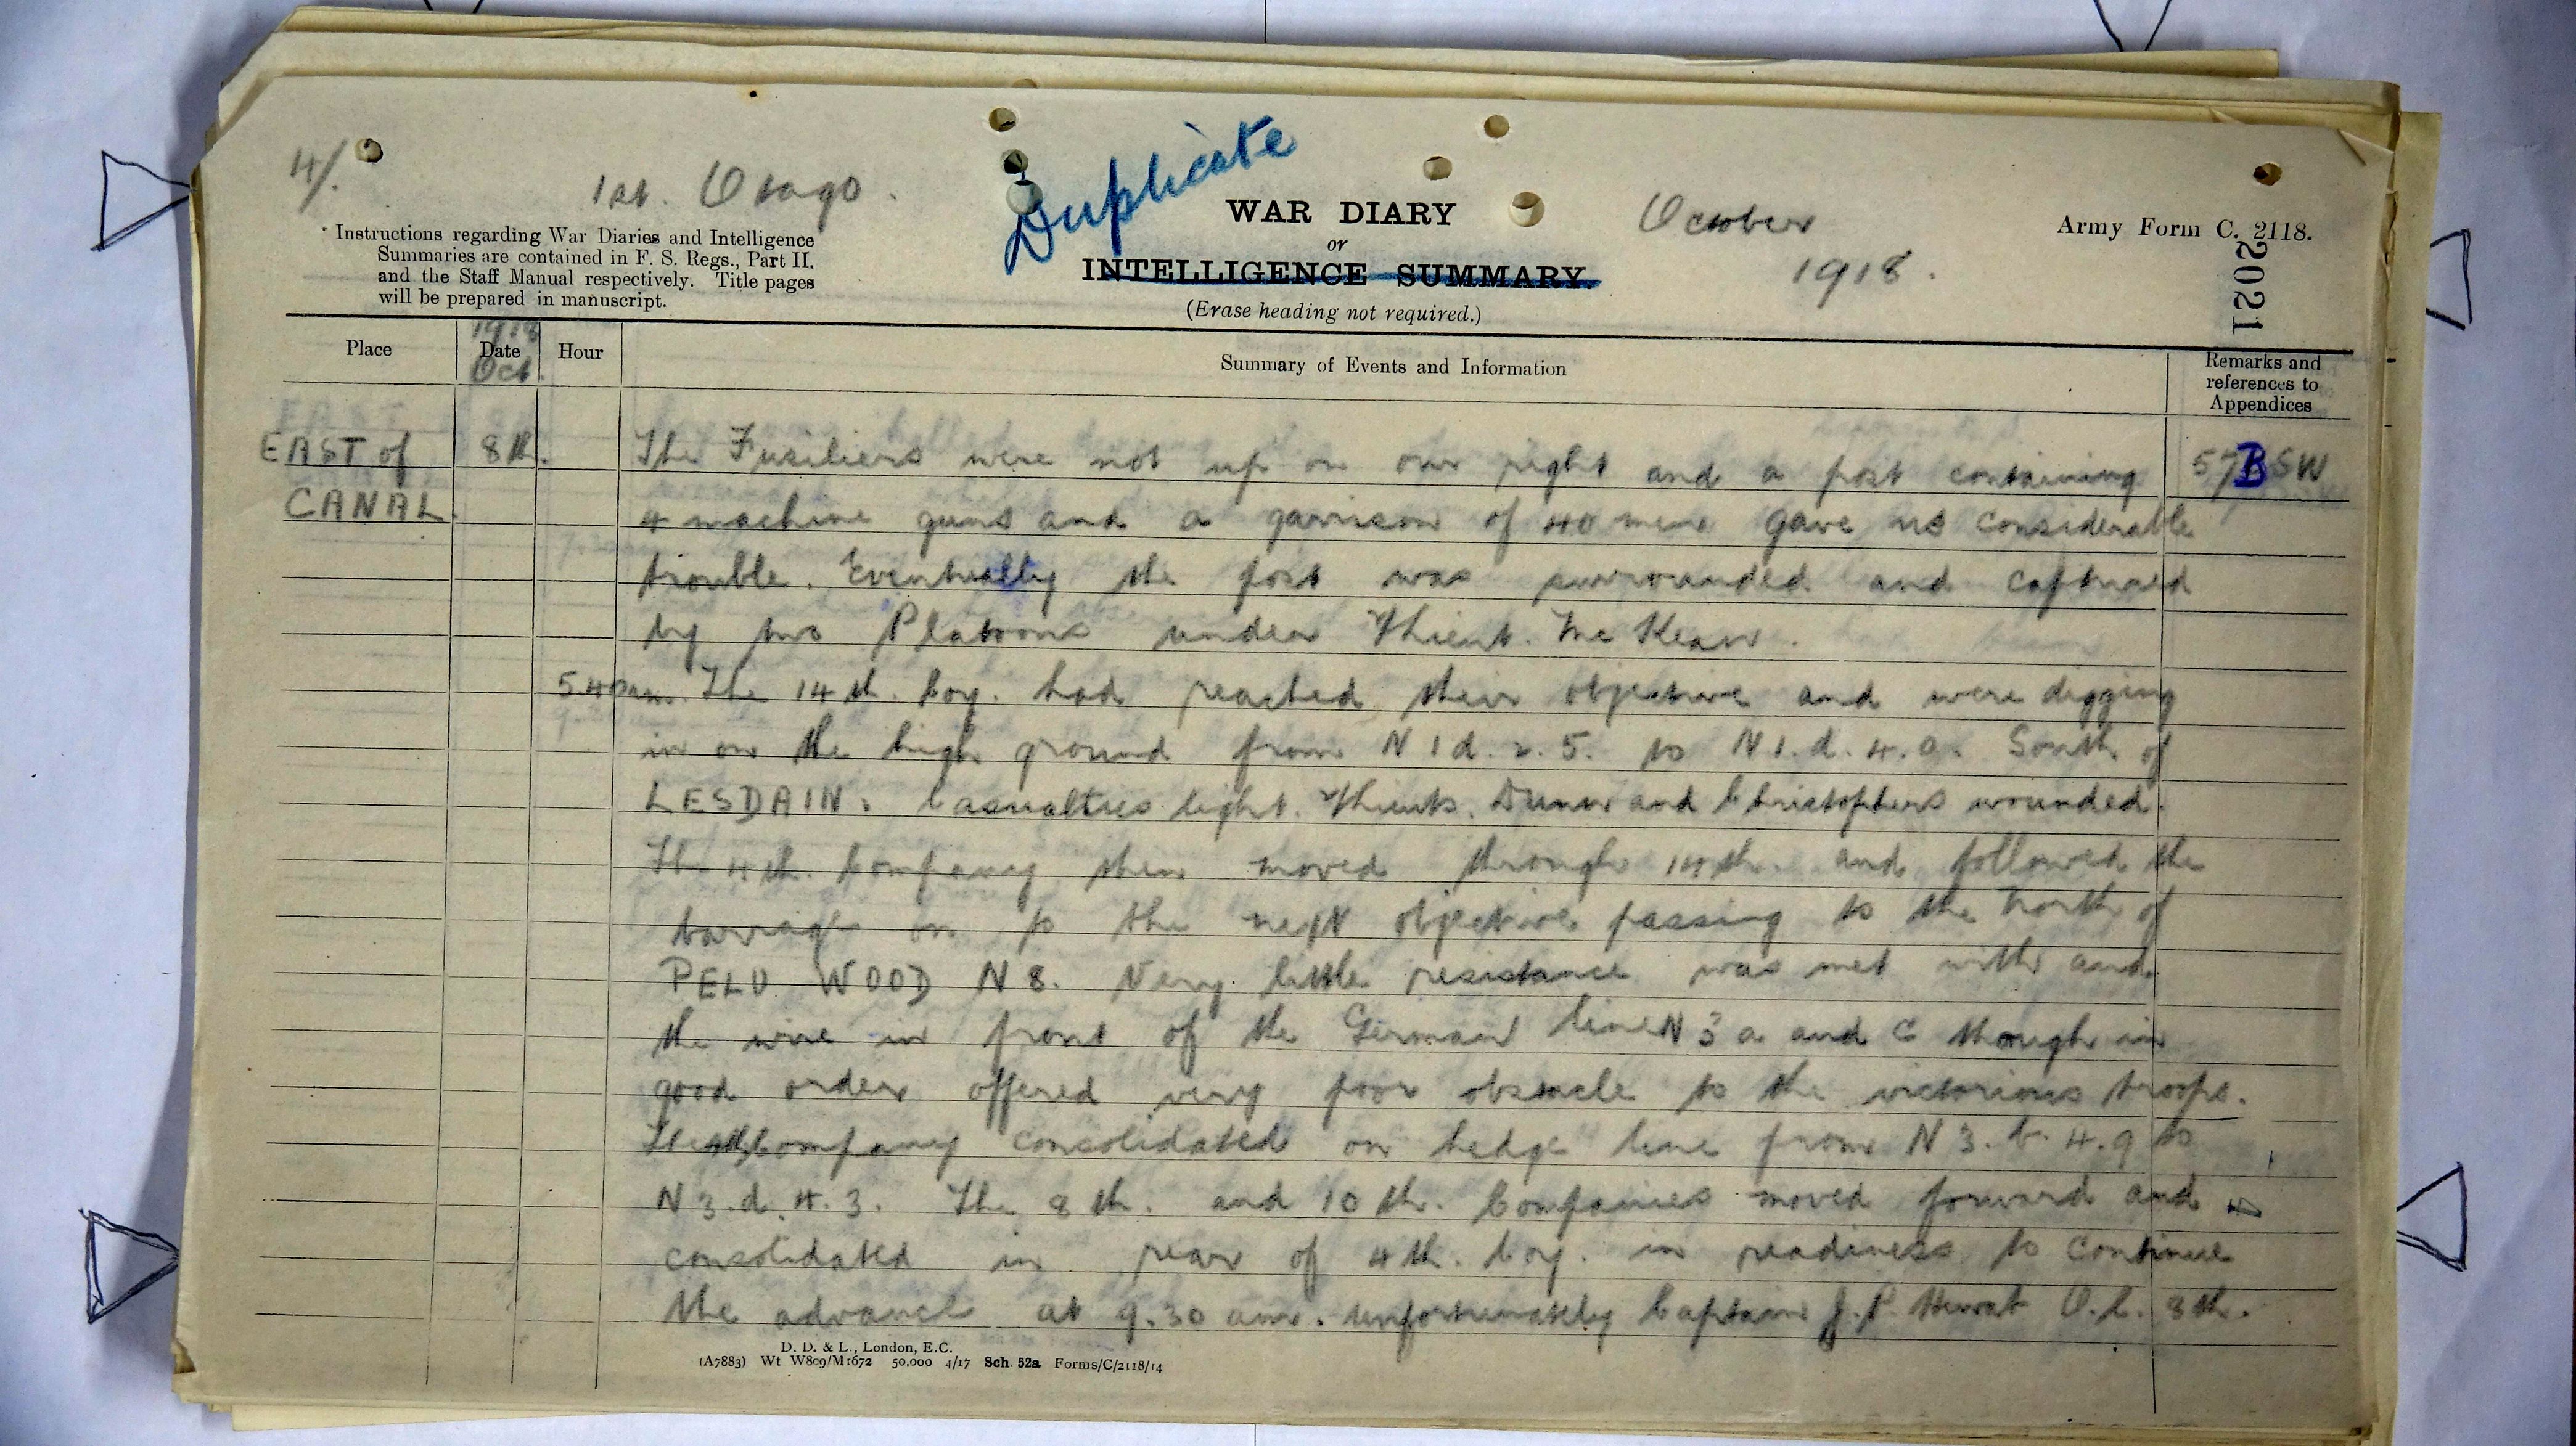 4/.
1st. Otago.
Duplicate
October
1918.
Army Form C. 2118.
2021
WAR DIARY
or
INTELLIGENCE SUMMARY.
(Erase heading not required.)
Instructions regarding War Diaries and Intelligence
Summaries are contained in F. S. Regs., Part II.
and the Staff Manual respectively. Title pages
will be prepared in manuscript.
Place
1918
Date
Oct.
Hour
Summary of Events and Information
Remarks and
references to
Appendices
EAST of 8th. The Fusiliers were not up on our right and a post containing 57B SW
CANAL. 4 machine guns and a garrison of 40 men gave us considerable
trouble. Eventually the post was surrounded and captured
by two Platoons under Lieut. McKean.
5 40 am. The 14th. Coy. had reached their objective and were digging
in on the high ground from N 1 d. 2. 5. to N 1. d. 4. 0. South of
LESDAIN. Casualties light. Lieuts. Dunn and Christophers wounded.
The 4th. Company then moved through 14th. and followed the
barrage on to the next objective passing to the North of
PELU WOOD N 8. Very little resistance was met with and
the wire in front of the German line N 3 a and c though in
good order offered very poor obstacle to the victorious troops.
The 4th Company consolidated on hedge line from N 3. b. 4. 9 to
N 3. d. 4. 3. The 8th. and 10th. Companies moved forward and
consolidated in rear of 4th. Coy. in readiness to continue
the advance at 9.30 am. Unfortunately Captain J. P. Hewat O.C. 8th.
D. D. & L., London, E.C.
(A7883) Wt W809/M1672 50,000 4/17 Sch. 52a Forms/C/2118/14